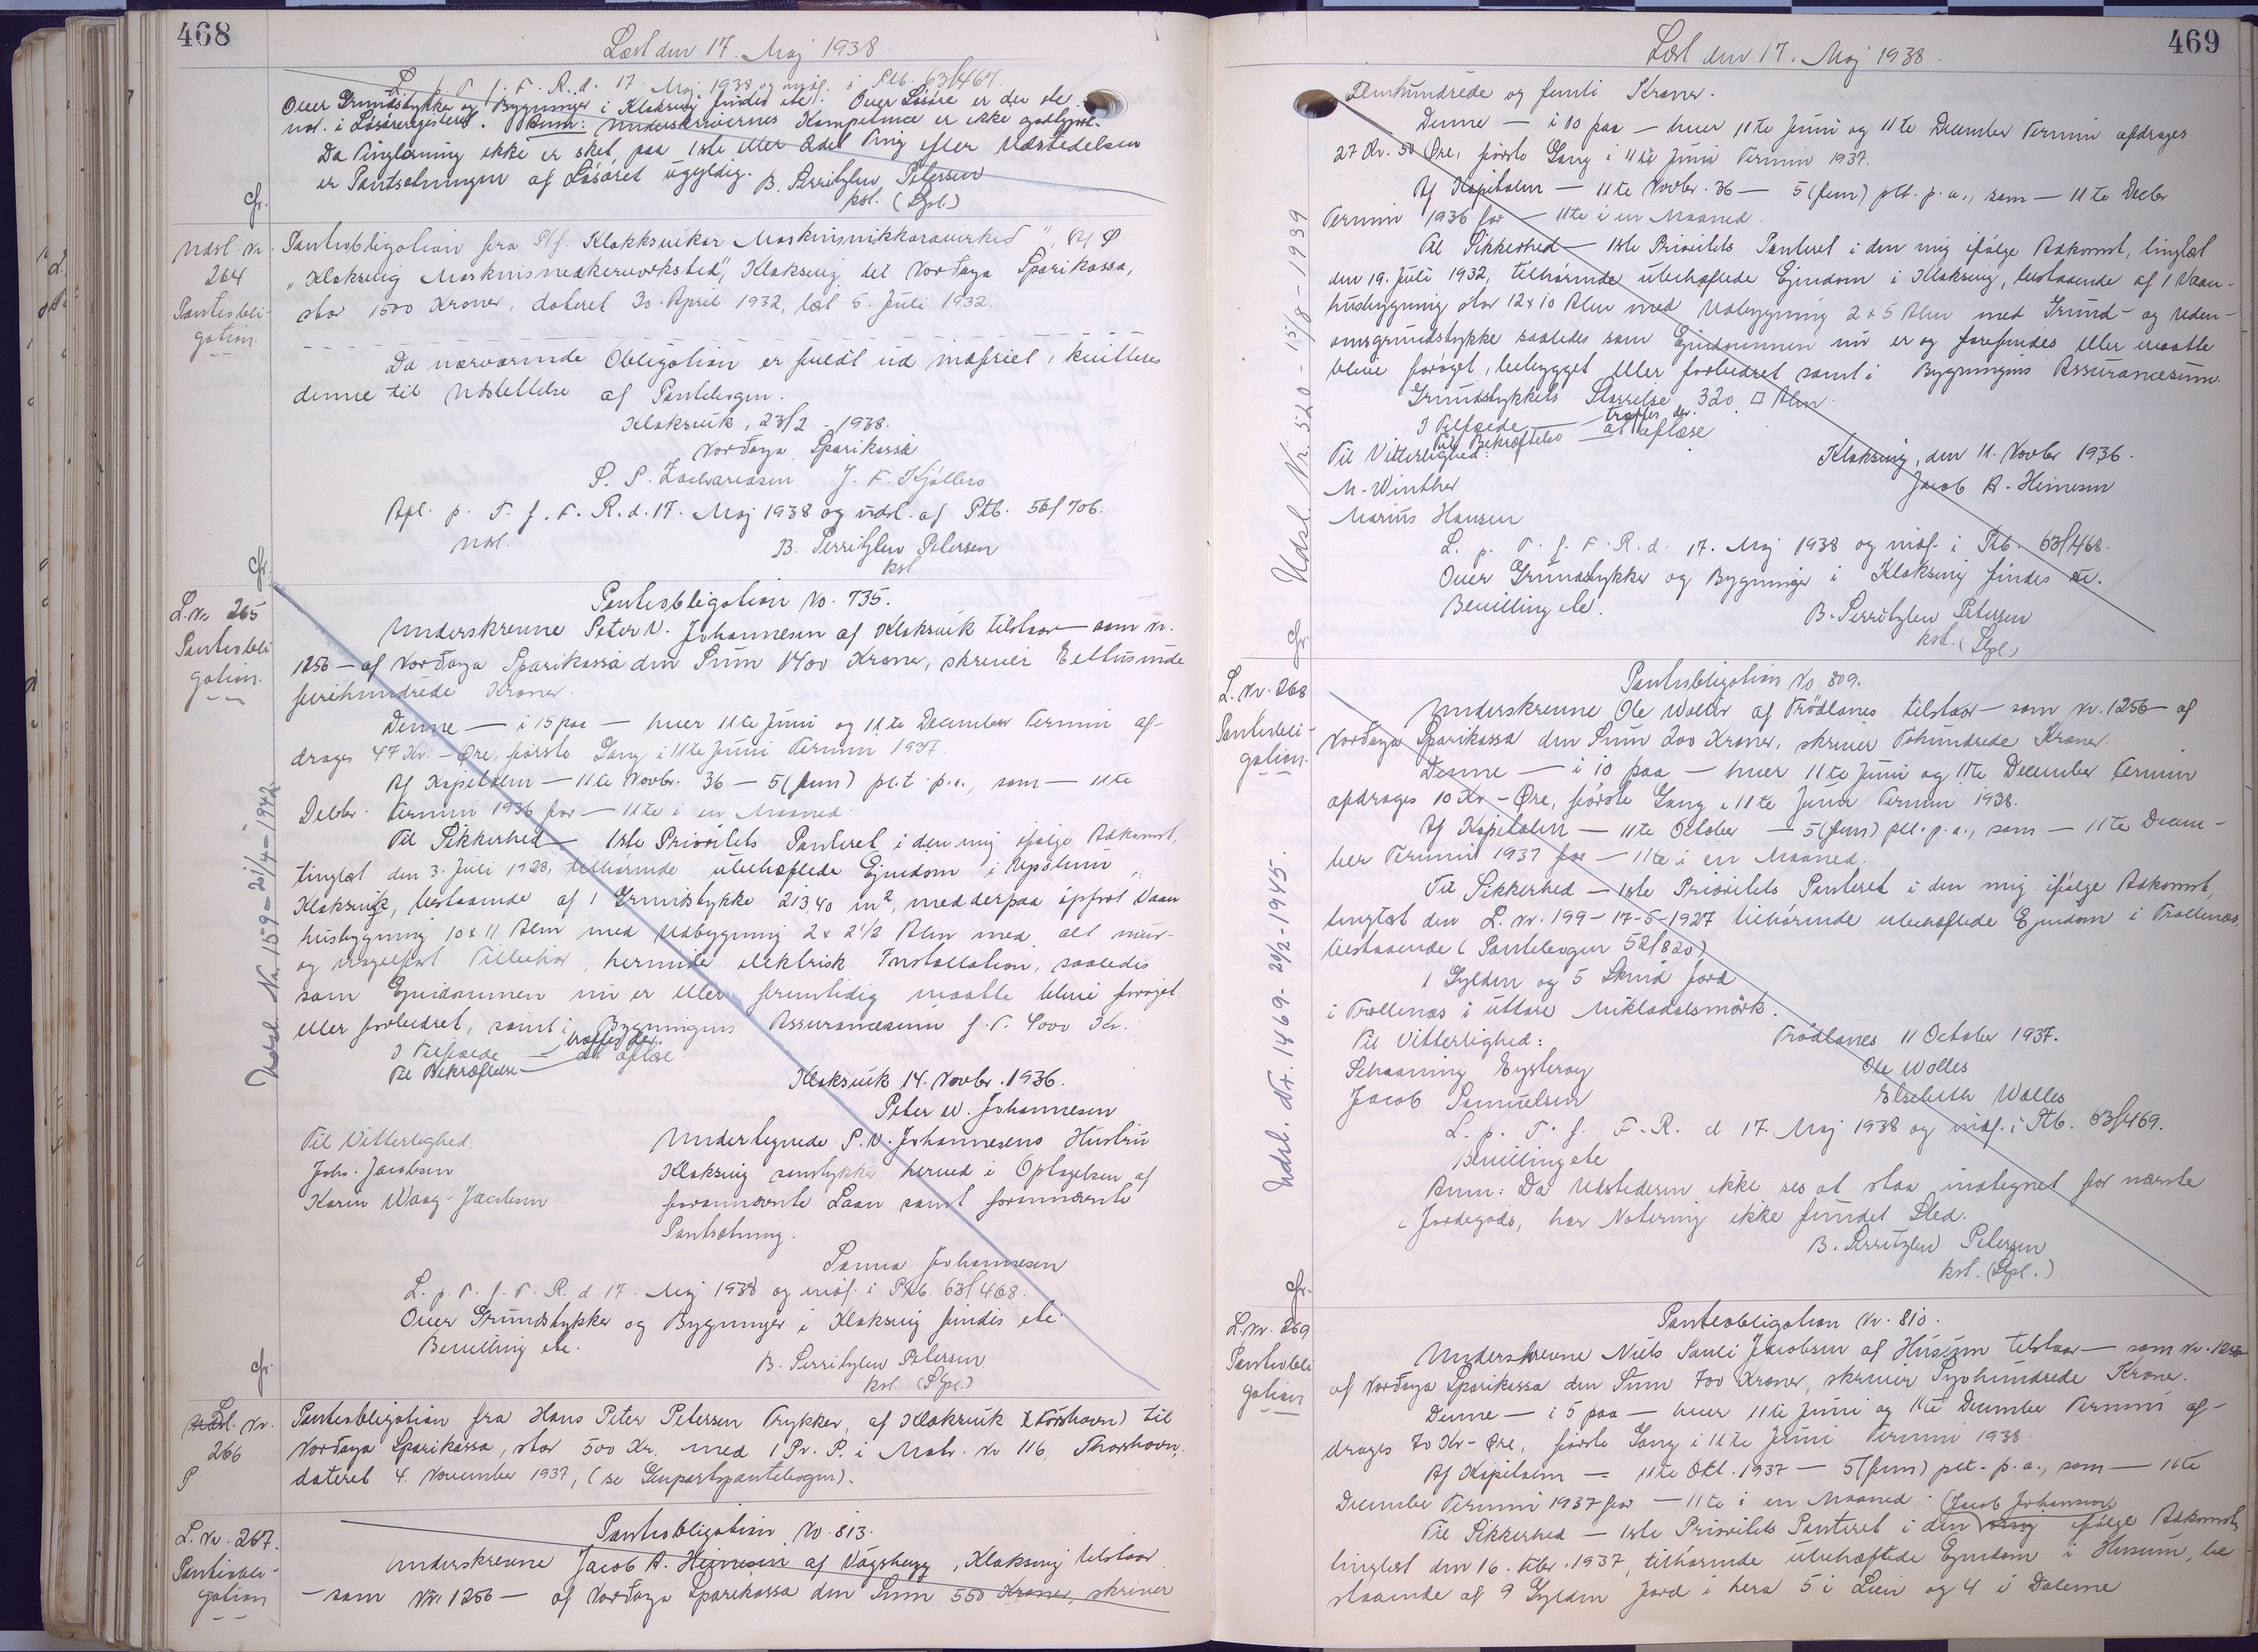 468
Læst den 17. Maj 1938
L. p. T. f. F. R. d. 17. Maj 1938 og indf. i Ptb. 63/467.
Over Grundstykker og Bygninger i Klaksvig findes ete. Over Løsøre er der ete
not. i Løsøreregisteret. Anm: Underskrivernes Kompetence er ikke godtgjort.
Da Tinglæsning ikke er sket paa 1ste eller 2det Ting efter Udstedelsen
er Pantsætningen af Løsøret ugyldig. B. Perritzlew Petersen
kst. (Spl.)
Gr.
Udsl. Nr.
264
Panteobli-
gation
Panteobligation fra Plf. "Klakksvikar Maskinsnikkaravirkið",
"Klaksvig Maskinsnedkerværksted", Klaksvig til Norðoya Sparikassa,
stor 1500 Kroner, dateret 30. April 1932, læst 5. Juli 1932.
Da nærværende Obligation er fuldt ud indfriet, kvitteres
denne til Udslettelse af Pantebogen.
Klaksvik, 23/2 - 1938.
Norðoya Sparikassa
P. S. Zachariasen J. F. Kjølbro
Afl. p. T. f. F. R. d. 17. Maj 1938 og udsl. af Ptb. 56/706.
Udsl.
B. Perritzlew Petersen
kst
Gr.
L. Nr. 265
Panteobli
gation.
Panteobligation No. 735.
Underskrevne Peter W. Johannesen af Klaksvik tilstaar — som Nr.
1256 — af Norðoya Sparikassa den Sum 1400 Kroner, skriver Eettusinde
firehundrede Kroner.
Denne — i 15 paa — hver 11te Juni og 11te December Termin af-
drages 47 Kr. - Øre, første Gang i 11te Juni Termin 1937.
Af Kapitalen — 11te Novbr. 36 — 5 (fem) pct. p.a., som — 11te
Decbr. Termin 1936 for — 11te i en Maaned.
Til Sikkerhed — 1ste Prioritets Panteret i den mig ifølge Adkomst,
tinglæst den 3. Juli 1928, tilhørende ubehæftede Ejendom i Uppsalum,
Klaksvig, bestaaende af 1 Grundstykke 213,40 m², med derpaa opført Vaan
husbygning 10 x 11 Alen med Udbygning 2 x 2½ Alen med alt mur-
og nagelfast Tilbehør, herunder elektrisk Installation, saaledes
som Ejendommen nu er eller fremtidig maatte blive forøget
eller forbedret, samt i Bygningens Assurancesum f. T. 4000 Kr.
I Tilfælde — træffes der.
Til Bekræftelse — at aflæse
Klaksvik 14. Novbr. 1936.
Peter W. Johannesen
Til Vitterlighed:
Johs. Jacobsen
Karin Waag-Jacobsen
Undertegnede P. W. Johannesens Hustru
Klaksvig samtykker herved i Optagelsen af
forannævnte Laan samt forannævnte
Pantsætning.
Sanna Johannesen
L. p. T. f. F. R. d. 17. Maj 1938 og indf. i Ptb. 63/468.
Over Grundstykker og Bygninger i Klaksvig findes ete.
Bevilling ete.
B. Perritzlew Petersen
kst. (Spl.)
Udsl. Nr. 159 - 21/4 - 1942
Gr.
L. Nr.
266
P
Panteobligation fra Hans Peter Petersen Trykker, af Klaksvik (Tórshavn) til
Norðoya Sparikassa, stor 500 Kr. med 1 Pr. P. i Matr. Nr 116, Thorshavn,
dateret 4. November 1937, (se Genpartspantebogen).
L. Nr. 267.
Panteobli-
gation
Panteobligation No. 813.
Underskrevne Jacob A. Heinesen af Vágsbygg, Klaksvig tilstaar
— som Nr. 1256 — af Norðoya Sparikassa den Sum 550 Kroner, skriver
469
Læst den 17. Maj 1938.
Femhundrede og femti Kroner.
Denne — i 10 paa — hver 11te Juni og 11te December Termin afdrages
27 Kr. 50 Øre, første Gang i 11te Juni Termin 1937.
Af Kapitalen — 11te Novbr. 36 — 5 (fem) pct. p. a., som — 11te Decbr
Termin 1936 for — 11te i en Maaned.
Til Sikkerhed — 1ste Prioritets Panteret i den mig ifølge Adkomst, tinglæst
den 19. Juli 1932, tilhørende ubehæftede Ejendom i Klaksvig, bestaaende af 1 Vaan-
husbygning stor 12 x 10 Alen med Udbygning 2 x 5 Alen med Grund- og uden-
omsgrundstykke saaledes som Ejendommen nu er og forefindes eller maatte
blive forøget, bebygget eller forbedret samt i Bygningens Assurancesum.
Grundstykkets Størrelse 320 □ Alen.
I Tilfælde — træffes der.
Til Bekræftelse — at aflæse
Til Vitterlighed:
M. Winther
Marius Hansen
Klaksvig, den 11. Novbr. 1936.
Jacob A. Heinesen
L. p. T. f. F. R. d. 17. Maj 1938 og indf. i Ptb. 63/468.
Over Grundstykker og Bygninger i Klaksvig findes ete.
Bevilling ete.
B. Perritzlew Petersen
kst. (Spl.)
Udsl. Nr. 520 - 15/8 - 1939
Gr.
L. Nr. 268
Panteobli-
gation.
Panteobligation No. 809.
Underskrevne Ole Wolles af Trödlanes tilstaar — som Nr. 1256 — af
Norðoya Sparikassa den Sum 200 Kroner, skriver Tohundrede Kroner.
Denne — i 10 paa — hver 11te Juni og 11te December Termin
afdrages 10 Kr - Øre, første Gang i 11te Juni Termin 1938.
Af Kapitalen — 11te October — 5 (fem) pct. p. a., som — 11te Decem-
ber Termin 1937 for — 11te i en Maaned.
Til Sikkerhed — 1ste Prioritets Panteret i den mig ifølge Adkomst,
tinglæst den L. Nr. 199 - 17-5-1927 tilhørende ubehæftede Ejendom i Trollenæs,
bestaaende (Pantebogen 52/820)
1 Gylden og 5 Skind Jord
i Trollenæs i uttare Mikladalsmørk.
Til Vitterlighed:
Schaaning Eysteroy
Jacob Samuelsen
Trödlanes 11 October 1937.
Ole Wolles
Elsebeth Wolles
L. p. T. f. F. R. d 17. Maj 1938 og indf. i Ptb. 63/469.
Bevilling ete
Anm: Da Udstederen ikke ses at staa indtegnet for nævnte
Jordegods, har Notering ikke fundet Sted.
B. Perritzlew Petersen
kst. (Spl.)
Udsl. Nr. 1469 - 20/2 - 1945.
Gr.
L. Nr. 269
Panteobli
gation
Panteobligation Nr. 810.
Underskrevne Niels Pauli Jacobsen af Húsum tilstaar — som Nr. 1256
af Norðoya Sparikassa den Sum 700 Kroner, skriver Syvhundrede Kroner.
Denne — i 5 paa — hver 11te Juni og 11te December Termin af-
drages 70 Kr - Øre, første Gang i 11te Juni Termin 1938.
Af Kapitalen — 11te Okt. 1937 — 5 (fem) pct. p. a., som — 11te
December Termin 1937 for — 11te i en Maaned. (Jacob Johansen)
Til Sikkerhed — 1ste Prioritets Panteret i den mig ifølge Adkomst,
tinglæst den 16. Febr. 1937, tilhørende ubehæftede Ejendom i Husum, be
staaende af 9 Gylden Jord i hera 5 i Lien og 4 i Dalerne